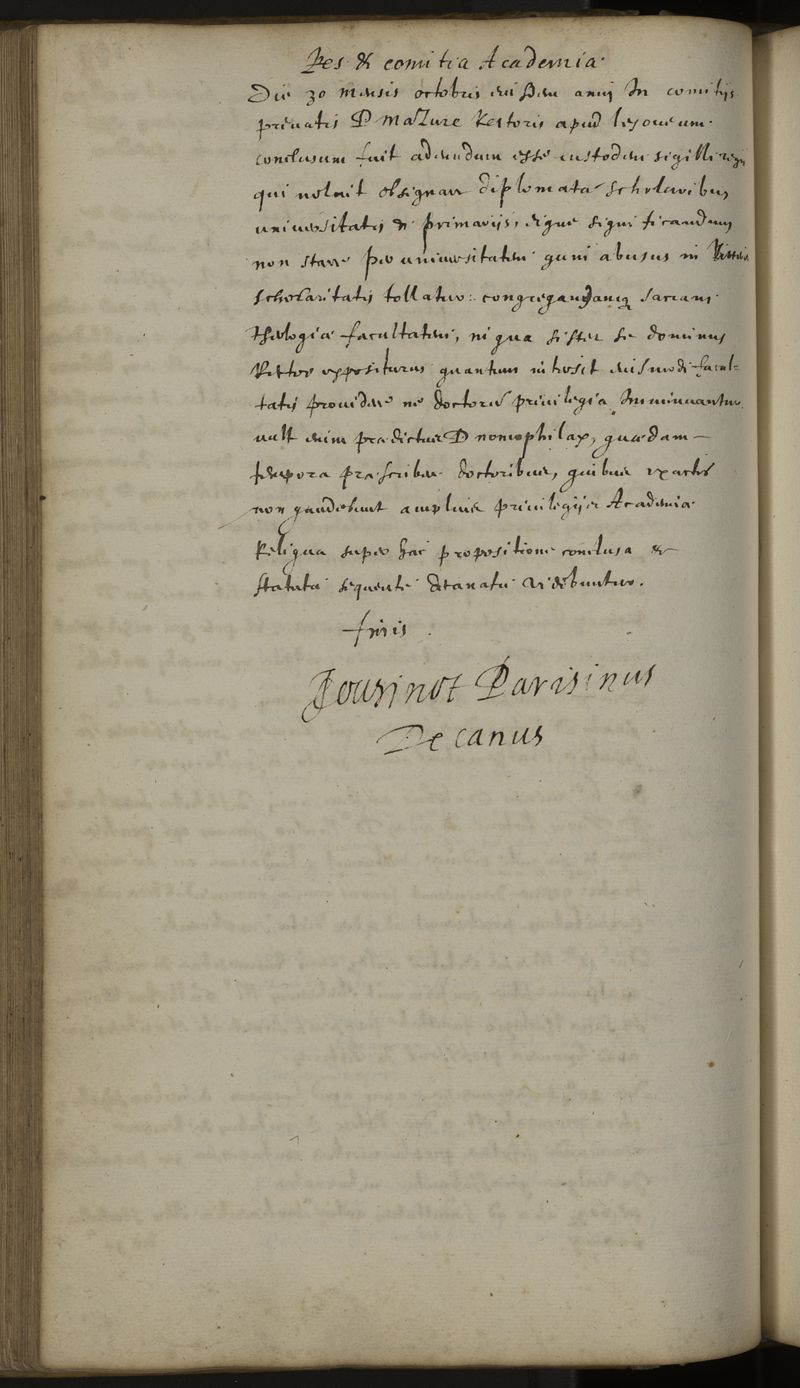 Res & comitia Academiæ.
Die 30 mensis octobris eiusdem anni In comitijs
priuatis D Mazure Rectoris apud lexoueum.
conclusum fuit adeundum esse custodem sigilli regij
qui noluit obsignare diplomata scholaribus
uniuersitatis & primarijs, eique significandum
non stare per uniuersitatem quin abusus in
scholaritatis tollatur: congregandamq sacram
theologiæ facultatem, in qua sistet se dominus
Rector expositurus quantum intersit eiusmodi facul-
tatis prouidere ne doctorum priuilegia Imminuantur
uult enim prædictus D nomophilax, quædam
tempora præscribere doctoribus, quibus exactis
non gaudebunt amplius priuilegijs Academiæ
Reliqua super hac propositione conclusa &
statuta sequente decanatu uidebuntur.
finis.
Gousinot Parisinus
Decanus